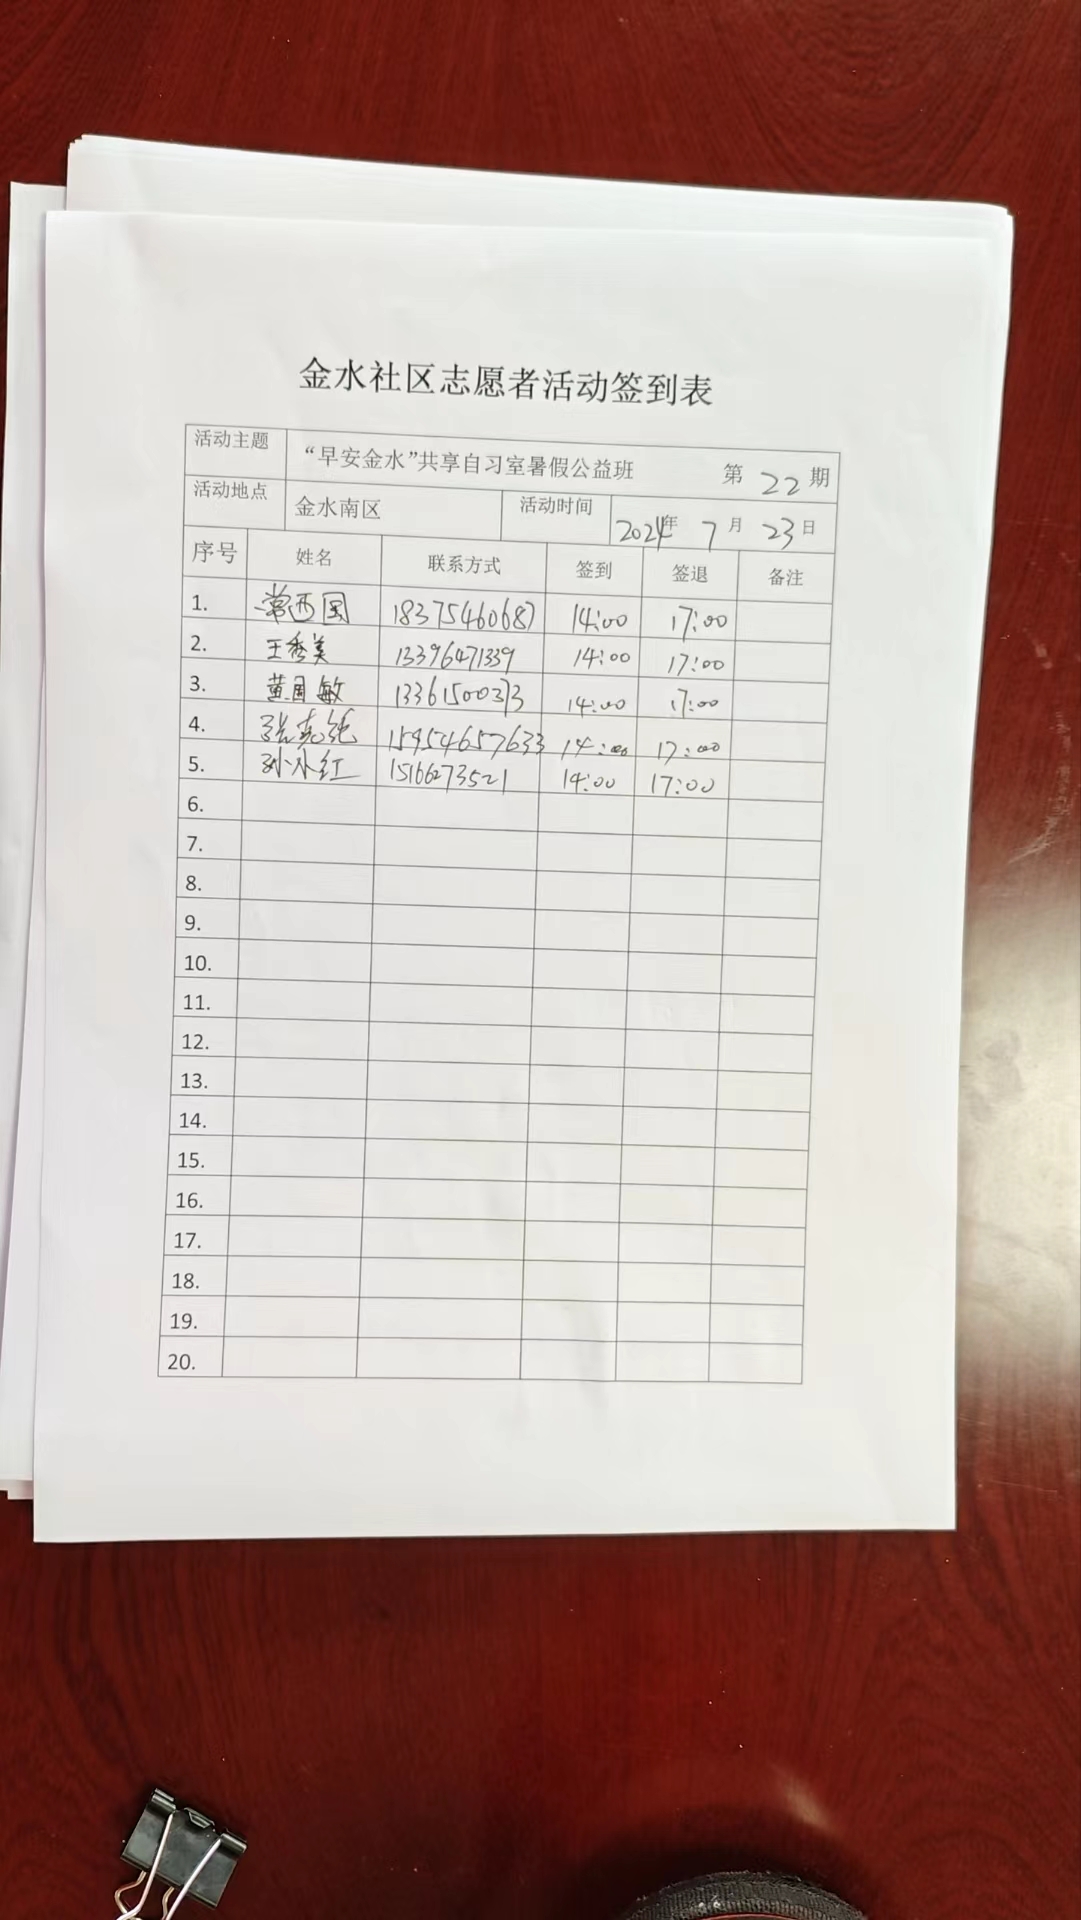 金水社区志愿者活动签到表
活动主题 “早安金水”共享自习室暑假公益班 第 22 期
活动地点 金水南区 活动时间 2024年 7 月 23 日
序号 姓名 联系方式 签到 签退 备注
1. 常西国 18375460687 14:00 17:00
2. 王秀美 13396471339 14:00 17:00
3. 黄国敏 13361500373 14:00 17:00
4. 15954657633 14:00 17:00
5. 孙小红 15166273521 14:00 17:00
6.
7.
8.
9.
10.
11.
12.
13.
14.
15.
16.
17.
18.
19.
20.